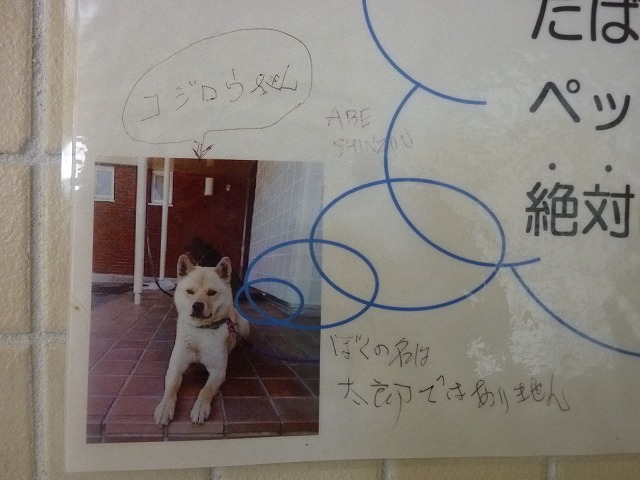 コジロウさん
ABE
SHINZOU
たば
ペッ
絶対
ぼくの名は
太郎ではありません